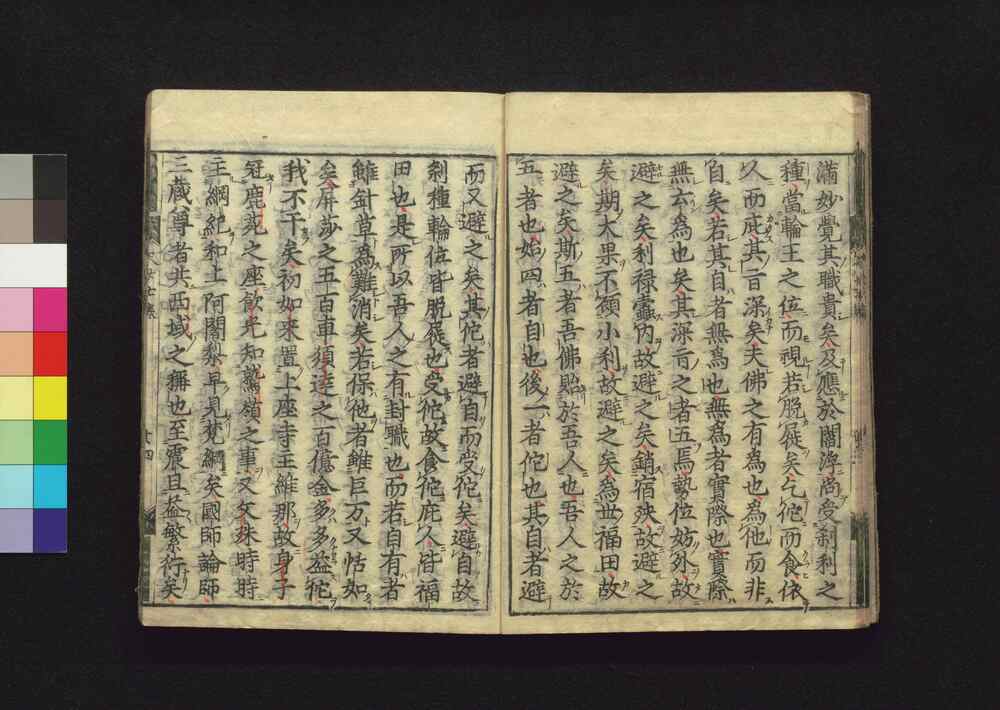 滿妙覺其職貴矣及應於閻浮尚受刹利之
種當輪王之位而視若脫屣矣乞佗而食依
人而庇其旨深矣夫佛之有為也為他而非
自矣若其自者無為也無為者實際也實際
無云為也矣其深旨之者五焉勢位妨外故
避之矣利祿蠹內故避之矣銷宿殃故避之
矣期大果不領小利故避之矣為世福田故
避之矣斯五者吾佛貽於吾人也吾人之於
五者也始四者自也後一者佗也其自者避
而又避之矣其佗者避自而受佗矣避自故
刹種輪位皆脫屣也受佗故食佗庇人皆福
田也是所以吾人之有封職也而若自有者
雖針草為難消矣若保他者雖巨万又恬如
矣屏莎之五百車須達之百億金多多益佗
我不干矣初如來置上座寺主維那故身子
冠鹿苑之座飲光知鷲嶺之事又文殊時時
主綱紀和上阿闍梨早見梵網矣國師論師
三藏尊者共西域之稱也至震旦益繁衍矣
廿四